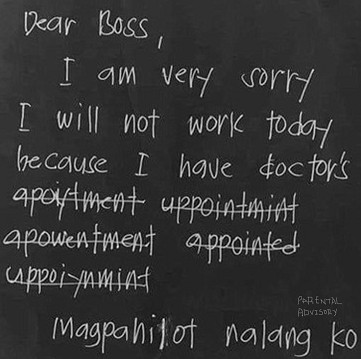 Dear Boss,
I am very sorry
I will not work today
because I have doctor's
apoiytment uppointmint
apowentment appointed
uppoiynmint
PARENTAL
ADVISORY
Magpahilot nalang ko